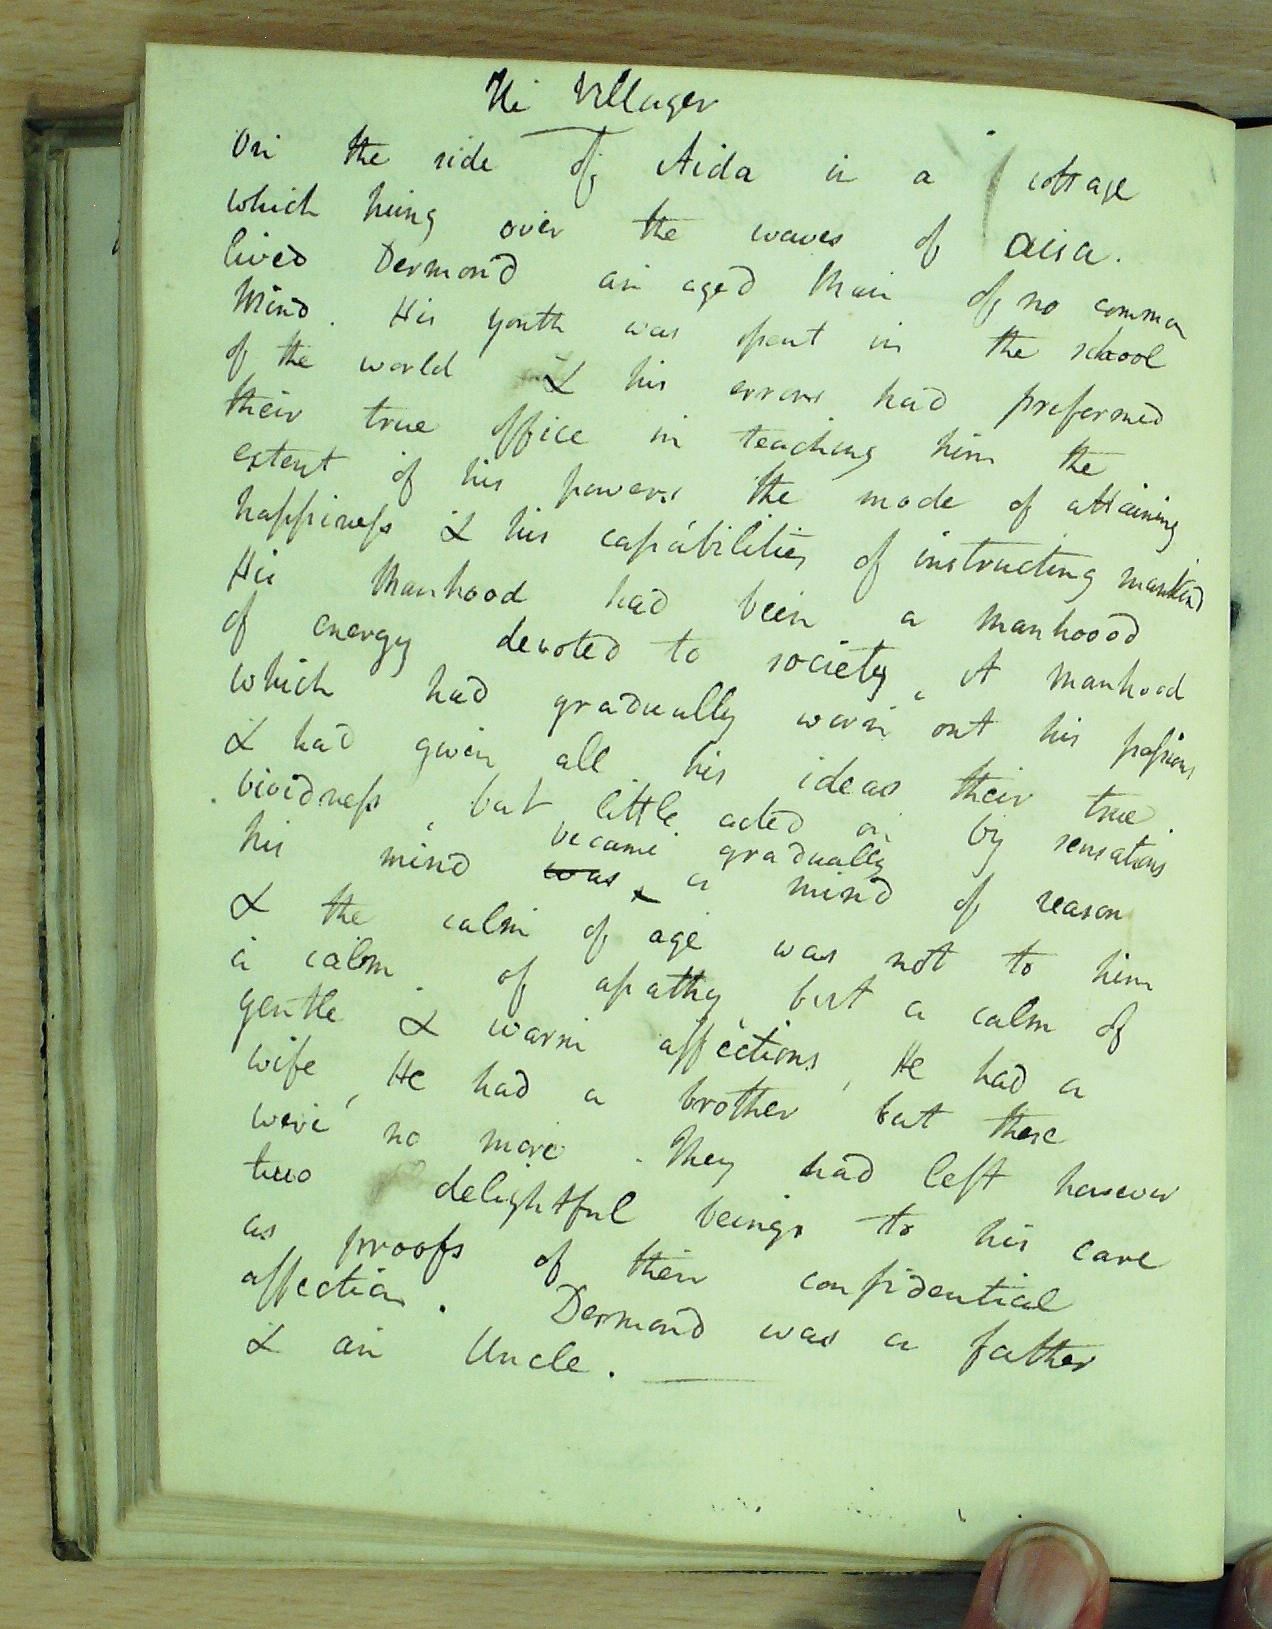 The Villager
On the side of Aida in a cottage
which hung over the waves of Aisa.
lived Dermond an aged Man of no common
Mind. His youth was spent in the school
of the world & his errors had preformed
their true office in teaching him the
extent of his powers the mode of attaining
happiness & his capabilities of instructing mankind
His Manhood had been a Manhoood
of energy devoted to society, A Manhood
which had gradually worn out his passions
& had given all his ideas their true
vividness, but little acted on by sensations
became gradually
his mind was a mind of reason
& the calm of age was not to him
a calm of apathy but a calm of
gentle & warm affections, He had a
wife, He had a brother but these
were no more. They had left however
two delightful beings to his care
as proofs of their confidential
affection. Dermond was a father
& an Uncle.